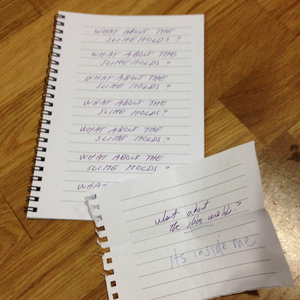 WHAT ABOUT THE
SLIME MOLDS?
WHAT ABOUT THE
SLIME MOLDS?
WHAT ABOUT THE
SLIME MOLDS?
WHAT ABOUT THE
SLIME MOLDS?
WHAT ABOUT THE
SLIME MOLDS?
WHAT ABOUT THE
SLIME MOLDS?
WHAT
what about
the slime molds?
its inside me